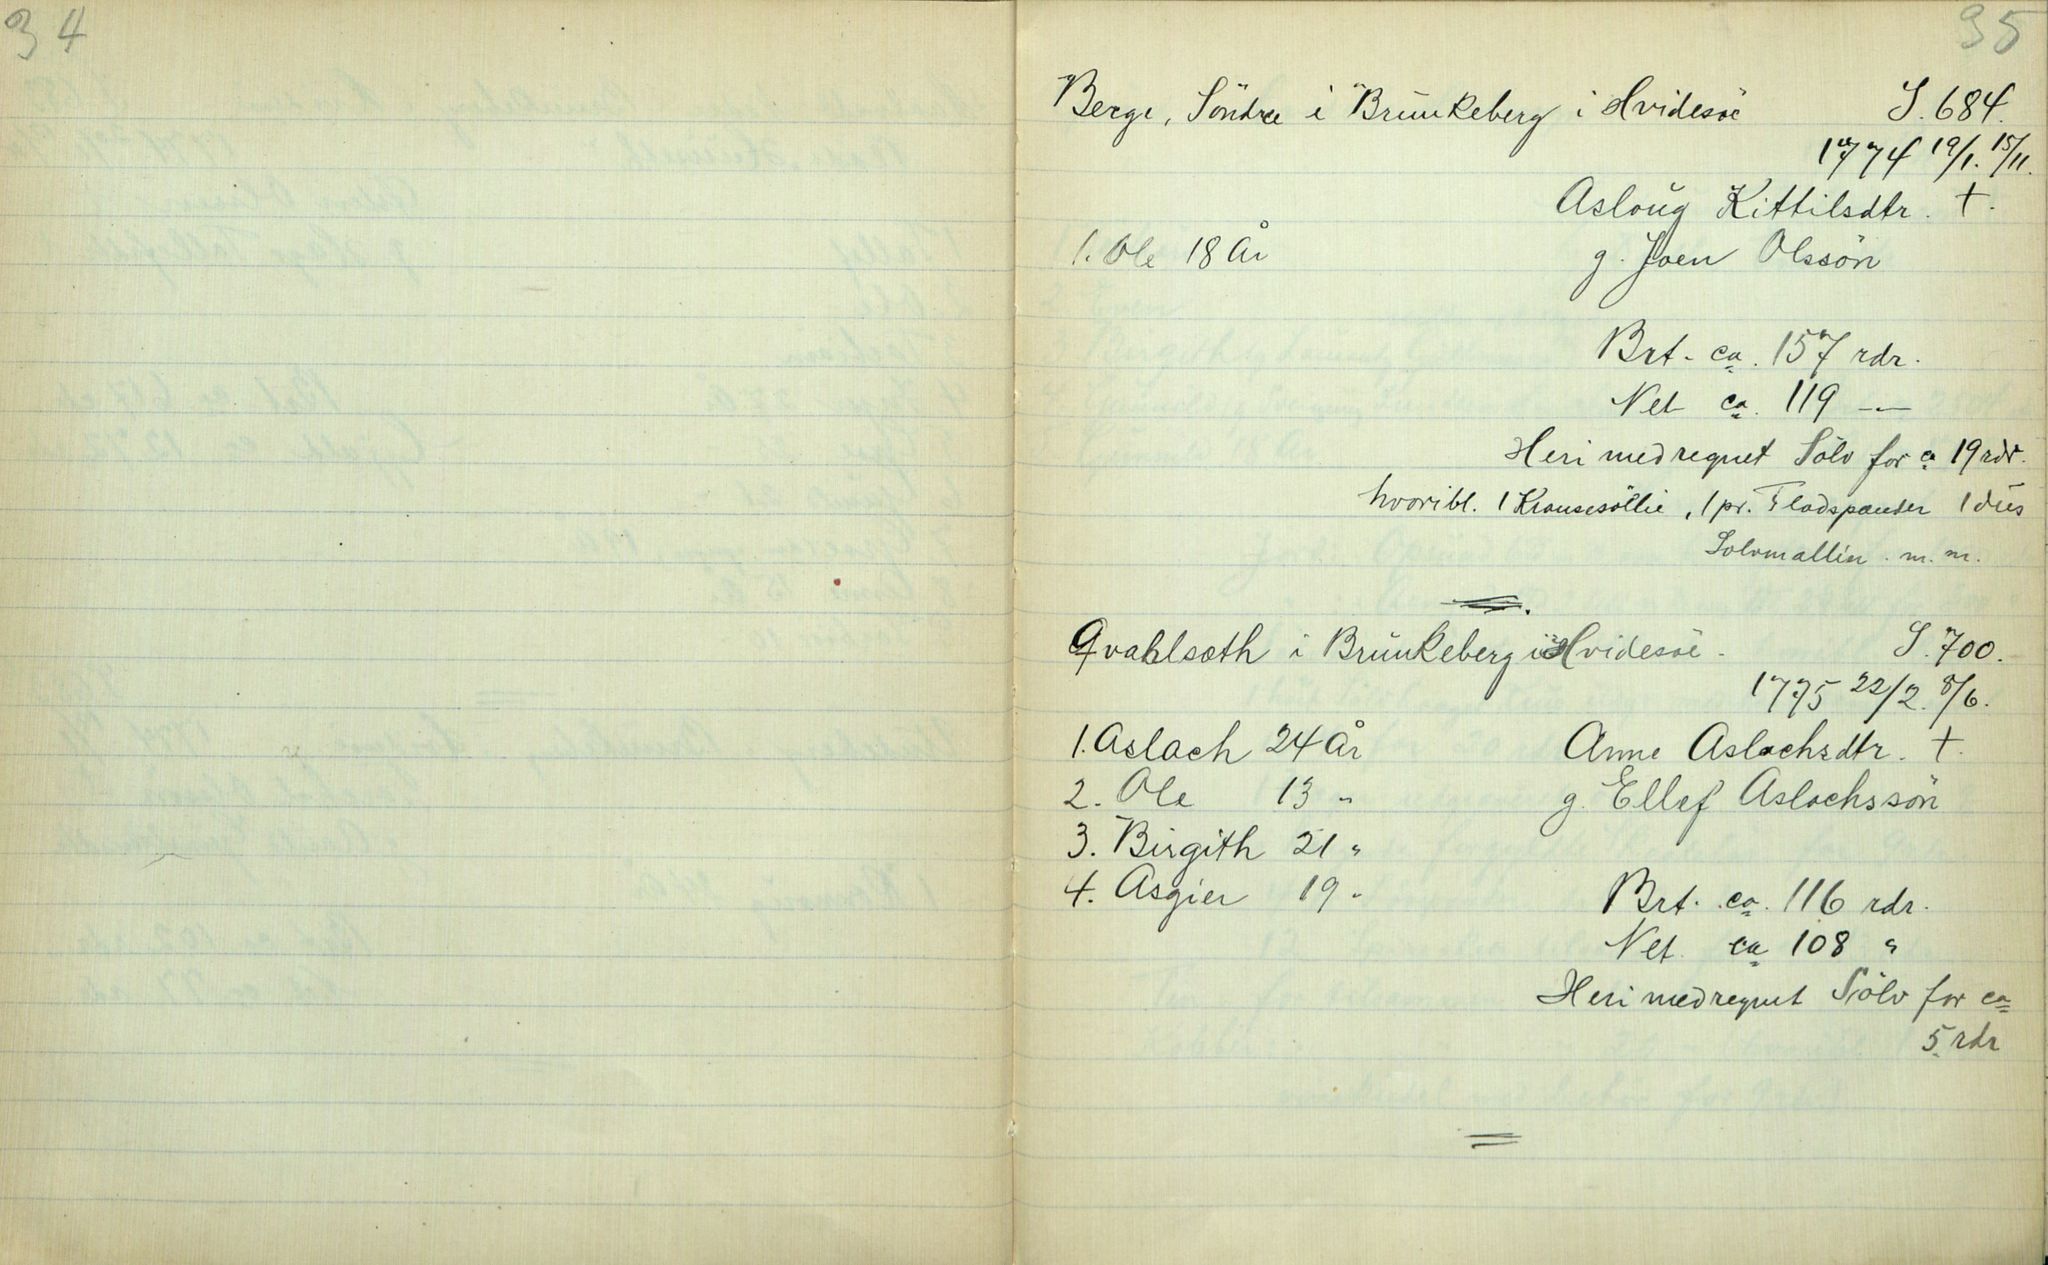 34
35
Berge, Söndre i Brünkeberg i Hvidesöe S. 684.
1774 19/1. 15/11.
Asloüg Kittilsdtr. †.
1. Ole 18 År g. Joen Olssön
Brt. ca. 157 rdr.
Net ca. 119 —
Heri medregnet Sölv for ca 19 rdr.
hvoribl. 1 Krausesöllie, 1 pr. Fladspænder 1 düs
Solvmallin. m. m.
Qvahlsæth i Brünkeberg i Hvidesöe. S. 700.
1775 22/2. 8/6.
1. Aslach 24 År Anne Aslachsdtr. †.
2. Ole 13 " g. Ellef Aslachssön
3. Birgith 21 "
4. Asgier 19 " Brt. ca. 116 rdr.
Net. ca 108 "
Heri medregnet Sölv for ca
5 rdr